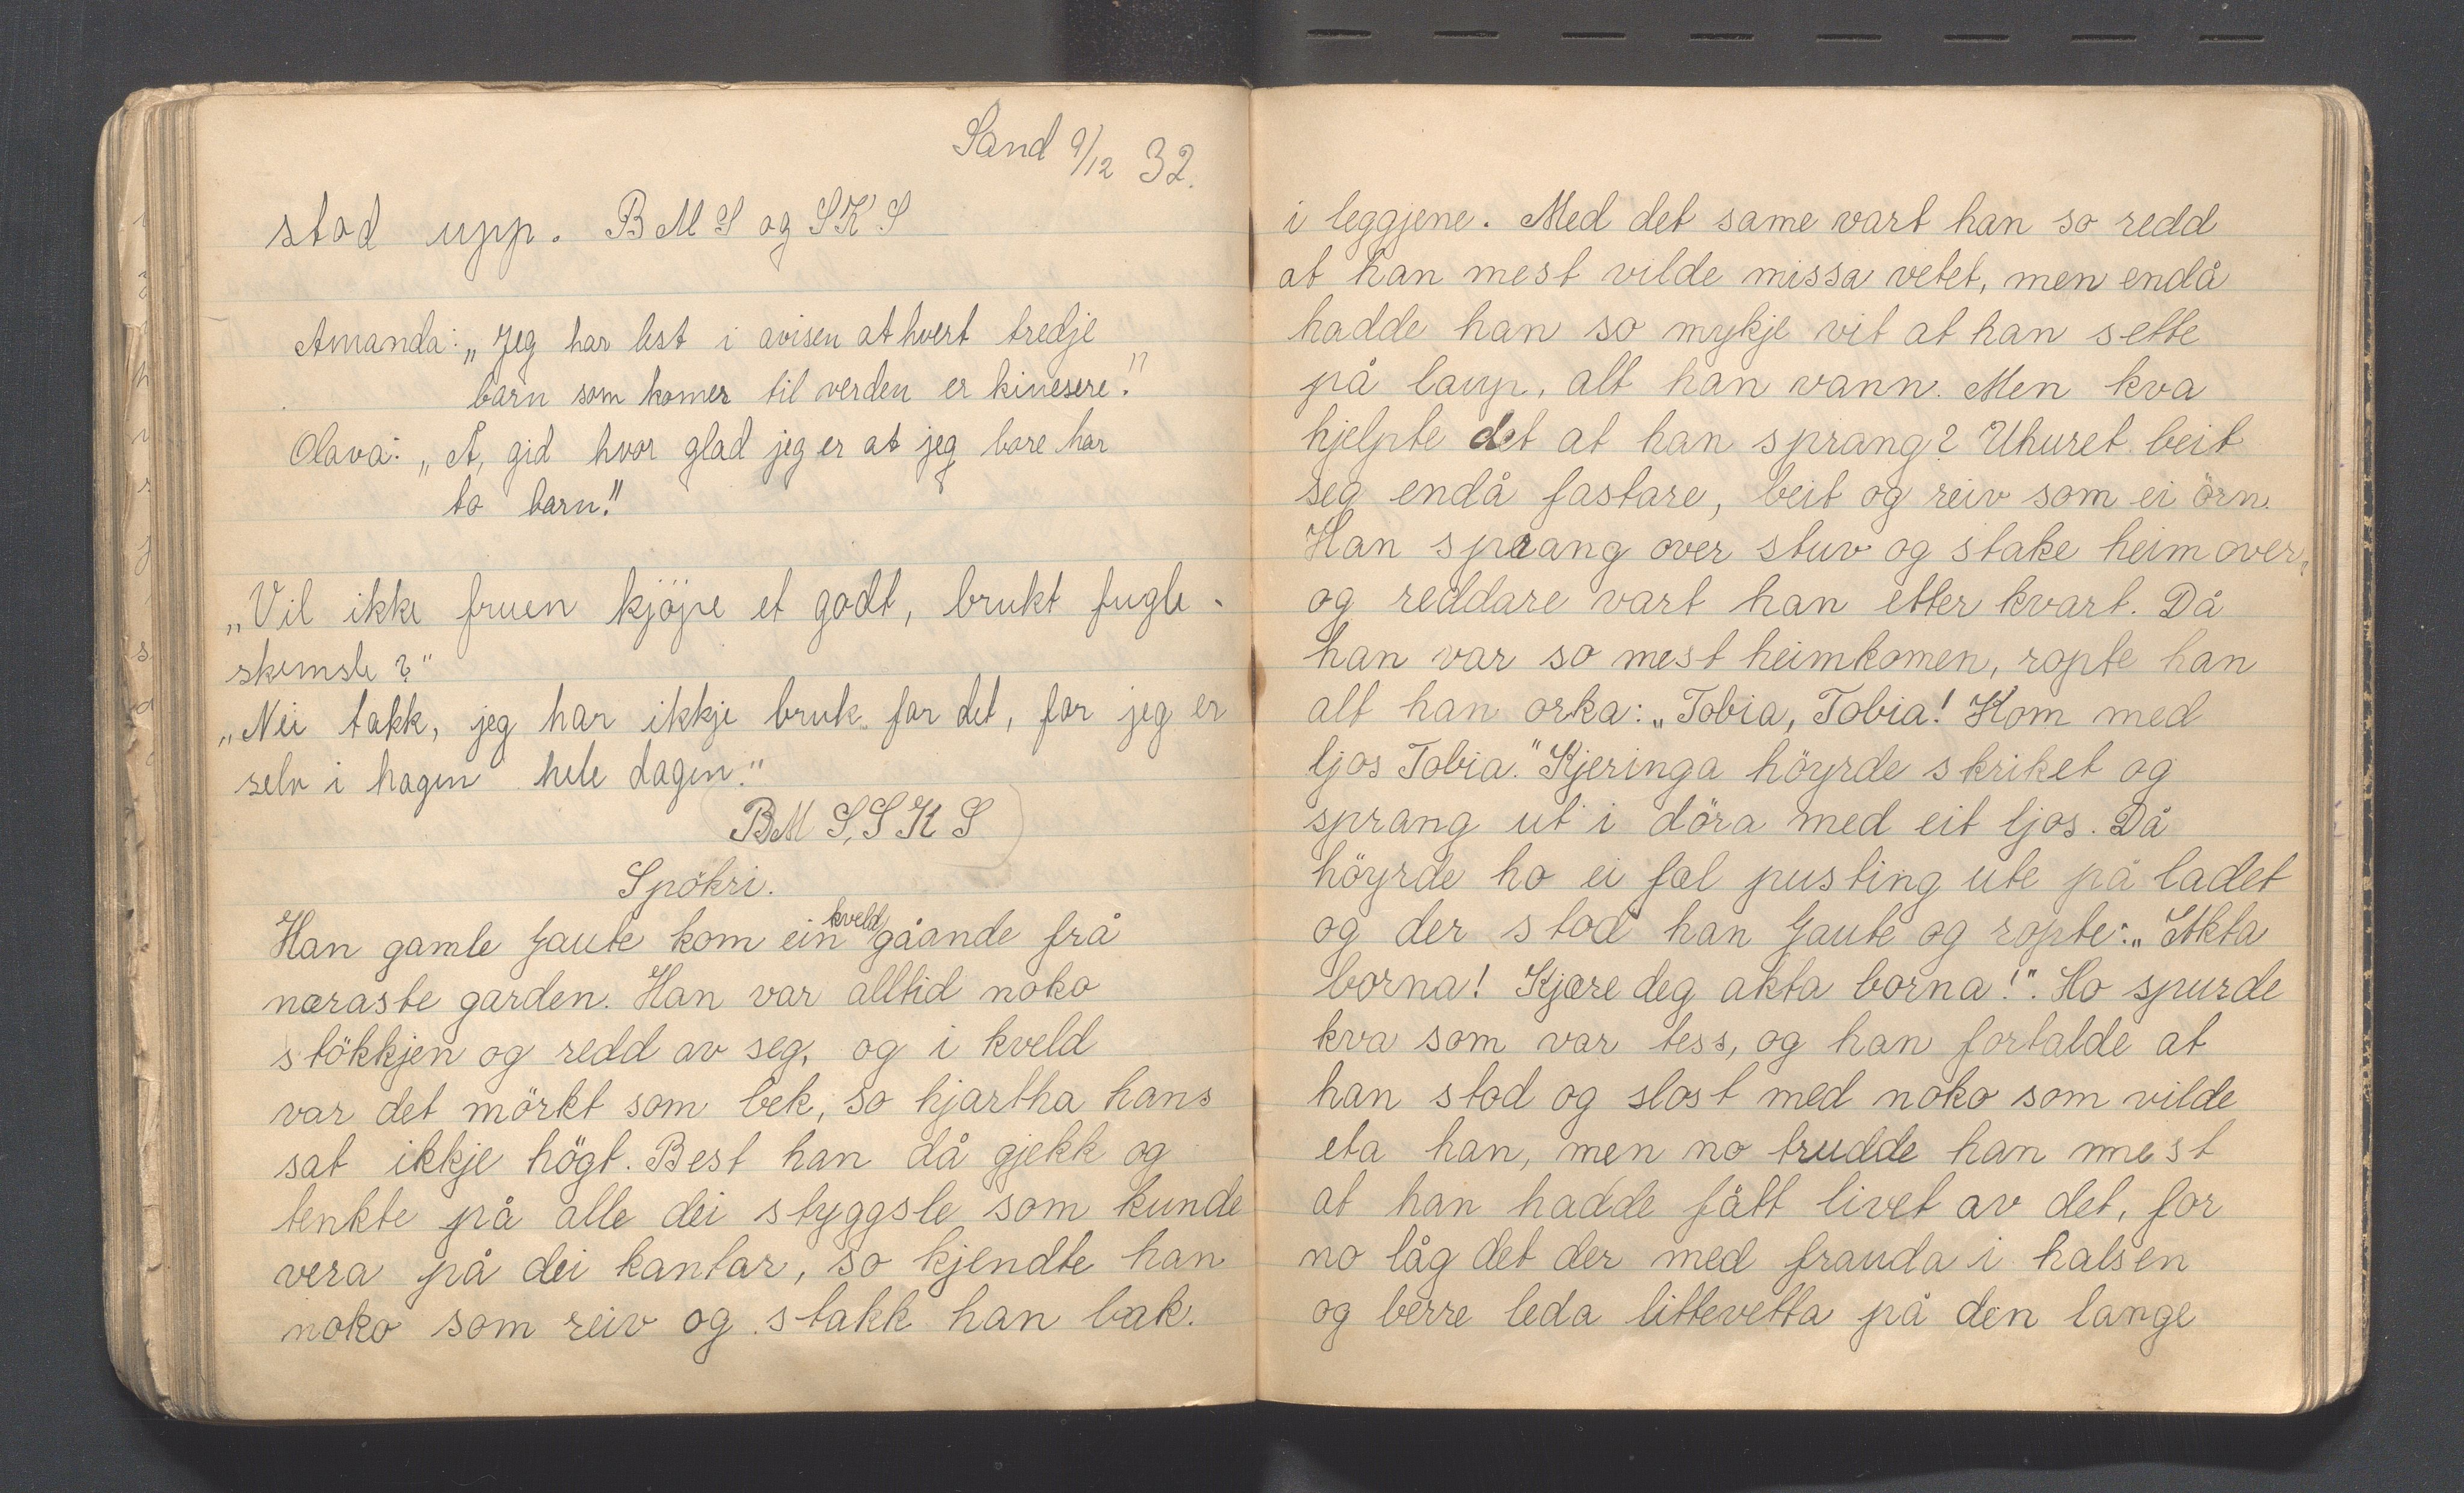 Sand 9/12 32.
stod upp. B M S og S K S
Amanda: „Jeg har lest i avisen at hvert tredje
barn som komer til verden er kinesere!"
Olava: „Å, gid hvor glad jeg er at jeg bare har
to barn!"
„Vil ikke fruen kjöpe et godt, brukt fugle-
skemsle?"
„Nei takk, jeg har ikkje bruk for det, for jeg er
selv i hagen hele dagen."
B M S, S K S
Spökri.
Han gamle Gaute kom ein kveld gåande frå
næraste garden. Han var alltid noko
stökkjen og redd av seg, og i kveld
var det mörkt som bek, so hjartha hans
sat ikkje högt. Best han då gjekk og
tenkte på alle dei styggsle som kunde
vera på dei kantar, so kjendte han
noko som reiv og stakk han bak.
i leggjene. Med det same vart han so redd
at han mest vilde missa vetet, men endå
hadde han so mykje vit at han sette
på laup, alt han vann. Men kva
hjelpte det at han sprang? Uhuret beit
seg endå fastare, beit og reiv som ei örn.
Han spraang over stuv og stake heimover,
og reddare vart han etter kvart. Då
han var so mest heimkomen, ropte han
alt han orka: „Tobia, Tobia! Kom med
ljos Tobia." Kjeringa höyrde skriket og
sprang ut i döra med eit ljos. Då
höyrde ho ei fæl pusting ute på ladet
og der stod han Gaute og ropte: „Akta
borna! Kjære deg akta borna!". Ho spurde
kva som var tess, og han fortalde at
han stod og slost med noko som vilde
eta han, men no trudde han mest
at han hadde fått livet av det, for
no låg det der med frauda i halsen
og berre leda littevetta på den lange